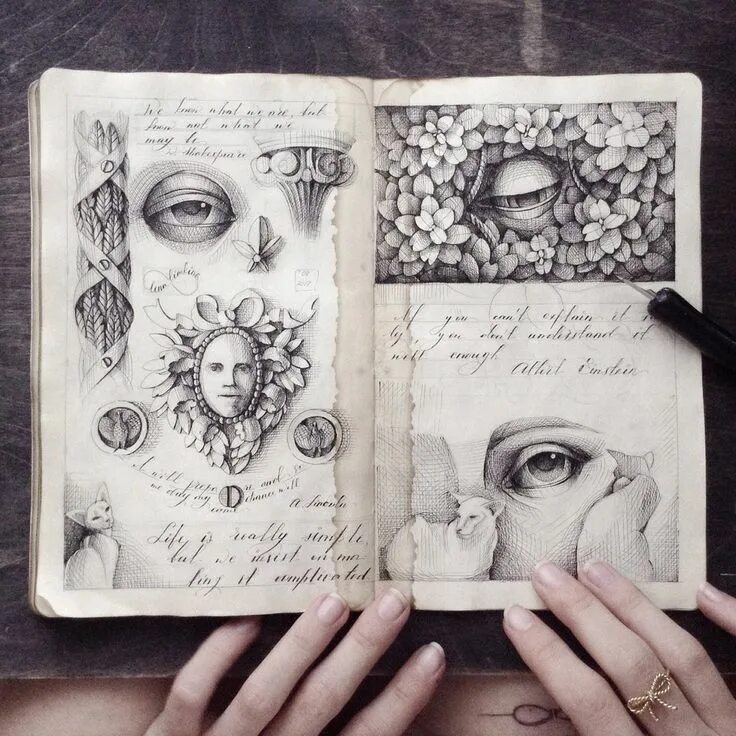 We know what we are, but
know not what we
may be
Shakespeare
D
D
D
I will prepa
me day my D chance will
come A. Lincoln
Life is really simple,
but we insist on ma
king it complicated
If you can't explain it
ly, you don't understand it
well enough
Albert Einstein